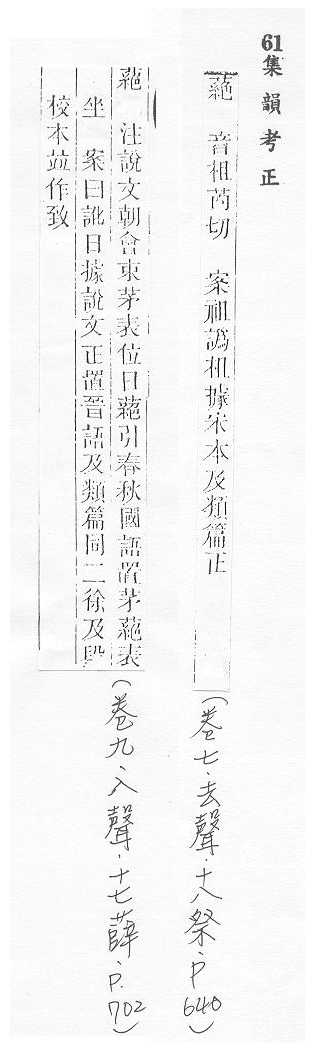 61集韻考正
蕝 音祖芮切 案祖譌柤據宋本及類篇正
(卷七、去聲、十八祭、P640)
蕝 注說文朝會束茅表位曰蕝引春秋國語置茅蕝表
坐 案曰訛日據說文正置晉語及類篇同二徐及段
校本竝作致
(卷九、入聲、十七薛、P.702)